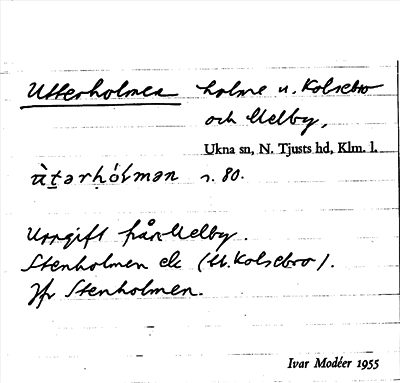 Utterholmen holme u. Kolsebro
och Melby,
Ukna sn, N. Tjusts hd, Klm. l.
s. 80.
Uppgift från Melby.
Stenholmen ek (U. Kolsebro).
Jfr Stenholmen.
Ivar Modéer 1955